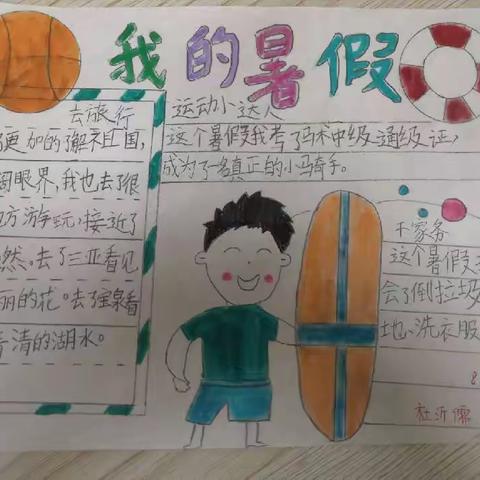 我的暑假
去旅行
了更加的了解祖国,
阔眼界,我也去了很
方游玩,接近了
然。去了三亚看见
丽的花。去了宝泉看
清的湖水。
运动小达人
这个暑假我考了马术中级通级证,
成为了一名真正的小马奇手。
家务
这个暑假
会了倒垃圾
地、洗衣服
杜沂儒